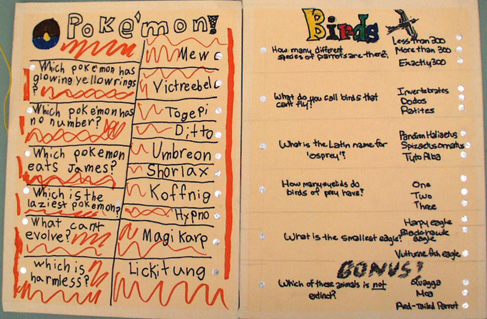 Poke'mon!
Which pokemon has
glowing yellow rings
?
Which poke'mon has
no number?
Which pokemon
eats James?
Which is the
laziest pokemon?
What cant
evolve?
which is
harmless?
Mew
Victreebel
Togepi
Ditto
Umbreon
Shorlax
Koffnig
Hypno
Magi Karp
Lickitung
Birds
How many different
species of parrots are there?
Less than 300
More than 300
Exactly 300
What do you call birds that
can't fly?
Invertebrates
Dodos
Ratites
What is the Latin name for
'osprey'?
Pandion Haliaetus
Spizaetus ornatus
Tyto Alba
How many eyelids do
birds of prey have?
One
Two
Three
What is the smallest eagle?
Harpy eagle
eagle
Vulturine fish eagle
BONUS!
Which of these animals is not
extinct?
Quagga
Moa
Red-Tailed Parrot